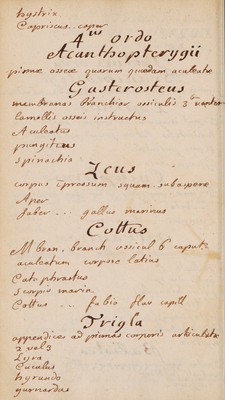 hystrix
Capriscus.. caper
4tus Ordo
Acanthopterygii
pinnæ osseæ quarum quædam aculeatæ
Gasterosteus
membranas branchior ossiculis 3
lamellis osseis instructus
Aculeatus
pungitius
spinachia
Zeus
corpus compressum squam. subasperæ
Aper
faber ... gallus marinus
Cottus
M bran. branch ossicul 6 caput
aculeatum corpore latius
Cataphractus
scorpio marin
Cottus ... fabio flav capill
Trigla
appendices ad pinnas corporis articulatæ
2 vel 3
Lyra
Cuculus
hyrundo
gurnardus